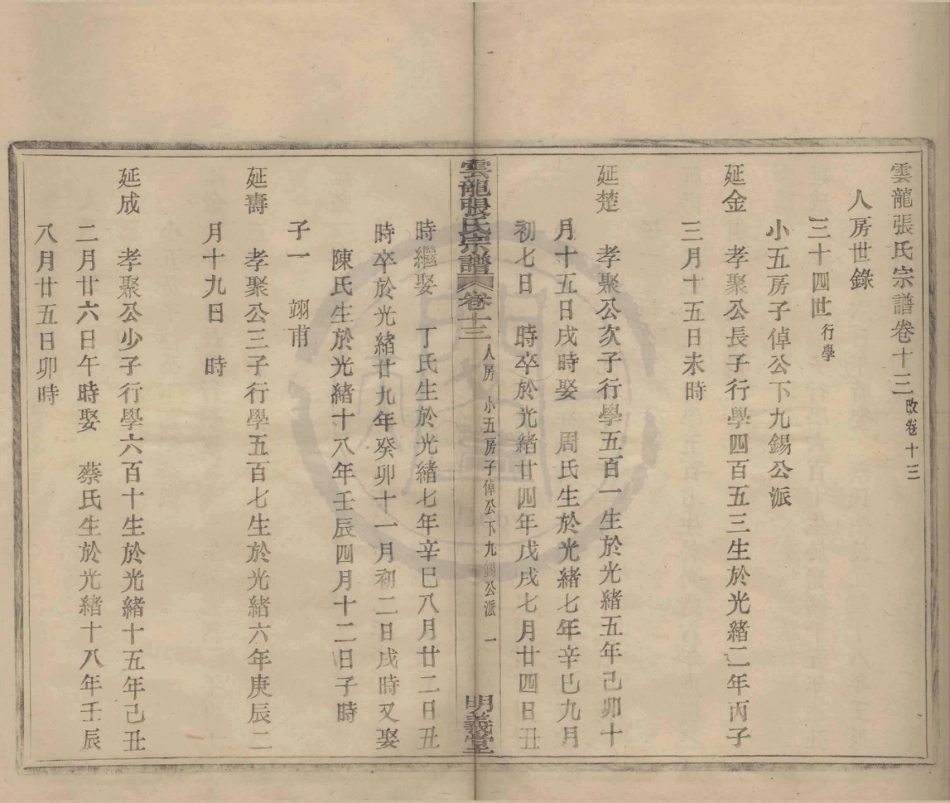 雲龍張氏宗譜卷十三 改卷十三
人房世錄
三十四世 行學
小五房子倬公下九錫公派
延金 孝聚公長子行學四百五三生於光緒二年丙子
三月十五日未時
延楚 孝聚公次子行學五百一生於光緒五年己卯十
月十五日戌時娶 周氏生於光緒七年辛巳九月
初七日 時卒於光緒廿四年戊戌七月廿四日丑
雲龍張氏宗譜 卷十三 人房 小五房子倬公下九錫公派 一 明義堂
時繼娶 丁氏生於光緒七年辛巳八月廿二日丑
時卒於光緒廿九年癸卯十一月初二日戌時又娶
陳氏生於光緒十八年壬辰四月十二日子時
子一 翊甫
延壽 孝聚公三子行學五百七生於光緒六年庚辰二
月十九日 時
延成 孝聚公少子行學六百十生於光緒十五年己丑
二月廿六日午時娶 蔡氏生於光緒十八年壬辰
八月廿五日卯時